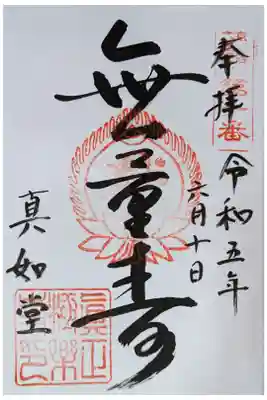 奉拝
令和五年
六月十日
無量寿
真如堂
真正極楽